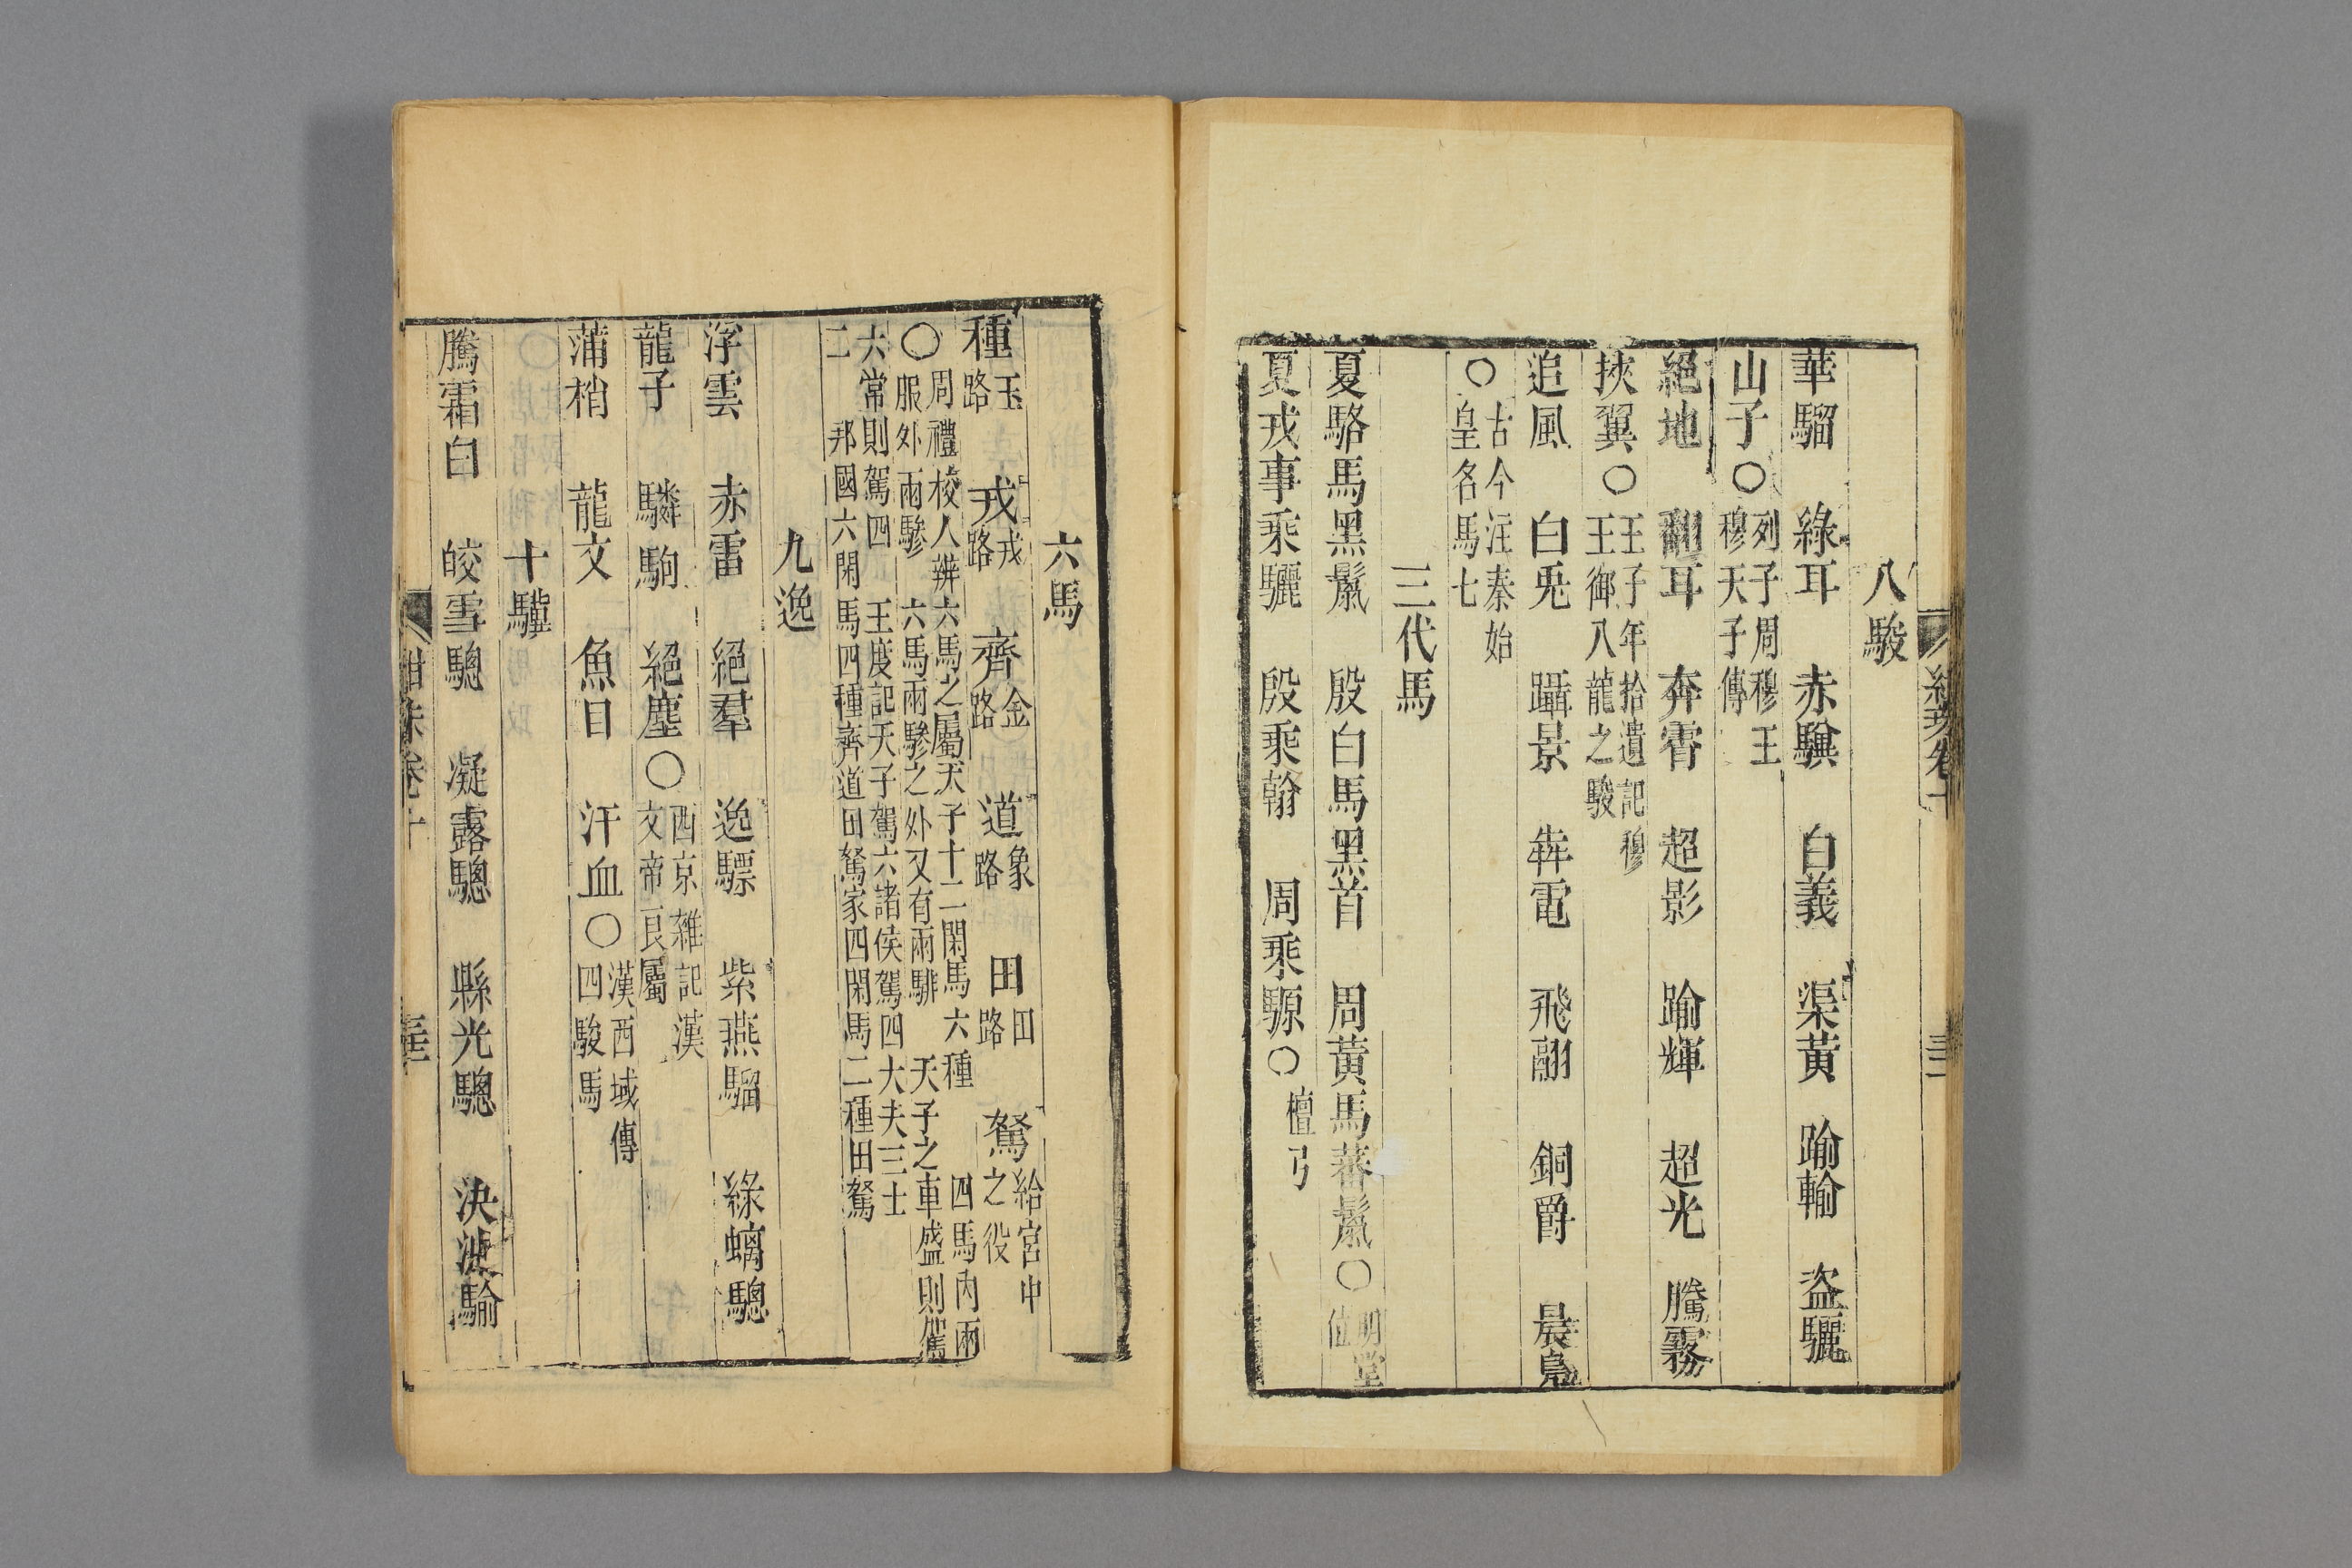 八駿
華騮 綠耳 赤驥 白義 渠黃 踰輪 盗驪
山子〇列子周穆王穆天子傳
絕地 翻羽 奔霄 超影 踰輝 超光 騰霧
挾翼〇王子年拾遺記穆王御八龍之駿
追風 白兎 躡景 犇電 飛翮 銅爵 晨鳧
〇古今注秦始皇名馬七
三代馬
夏駱馬黑鬛 殷白馬黑首 周黃馬蕃鬛〇明堂位
夏戎事乘驪 殷乘翰 周乘騵〇檀弓
六馬
種玉路 戎戎路 齊金路 道象路 田田路 駑給宮中之役
〇周禮校人辨六馬之屬天子十二閑馬六種 四馬內兩服外兩驂 六馬兩驂之外又有兩騑 天子之車盛則駕
六常則駕四 王度記天子駕六諸侯駕四大夫三士二 邦國六閑馬四種齊道田駑家四閑馬二種田駑
九逸
浮雲 赤雷 絕羣 逸驃 紫燕騮 綠螭驄
龍子 驎駒 絕塵〇西京雜記漢文帝良屬
蒲梢 龍文 魚目 汗血〇漢西域傳四駿馬
十驥
騰霜白 皎雪驄 凝露驄 縣光驄 決波騟